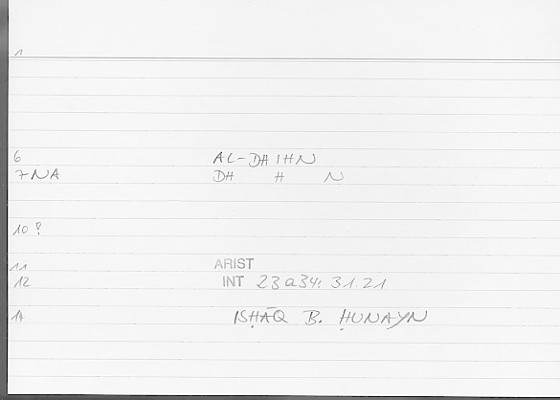 1
6 AL-DHIHN
7 NA DH H N
10 ?
11 ARIST
12 INT 23a34: 31.21
14 ISḤĀQ B. ḤUNAYN